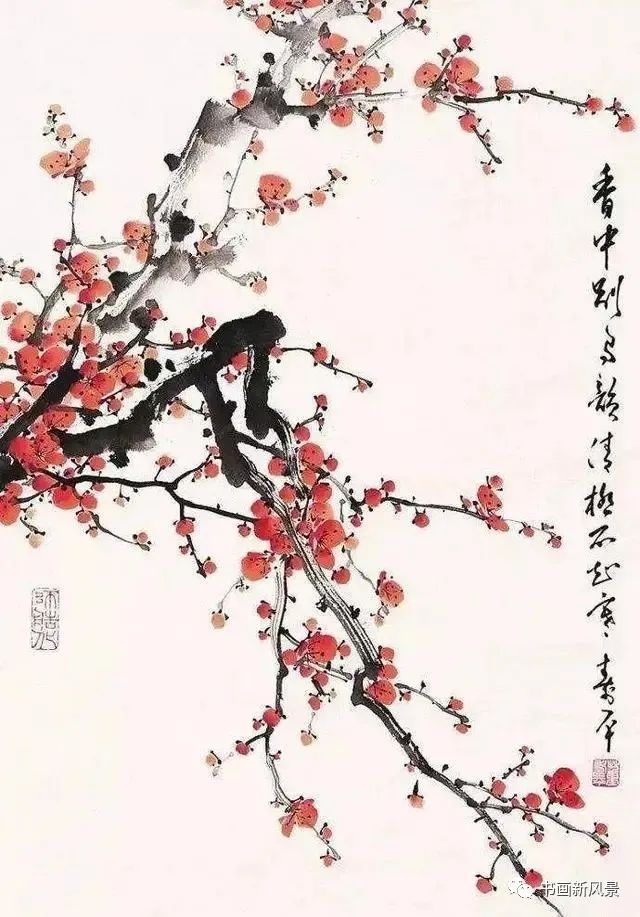 香中别有韻清極不知寒 壽平
书画新风景